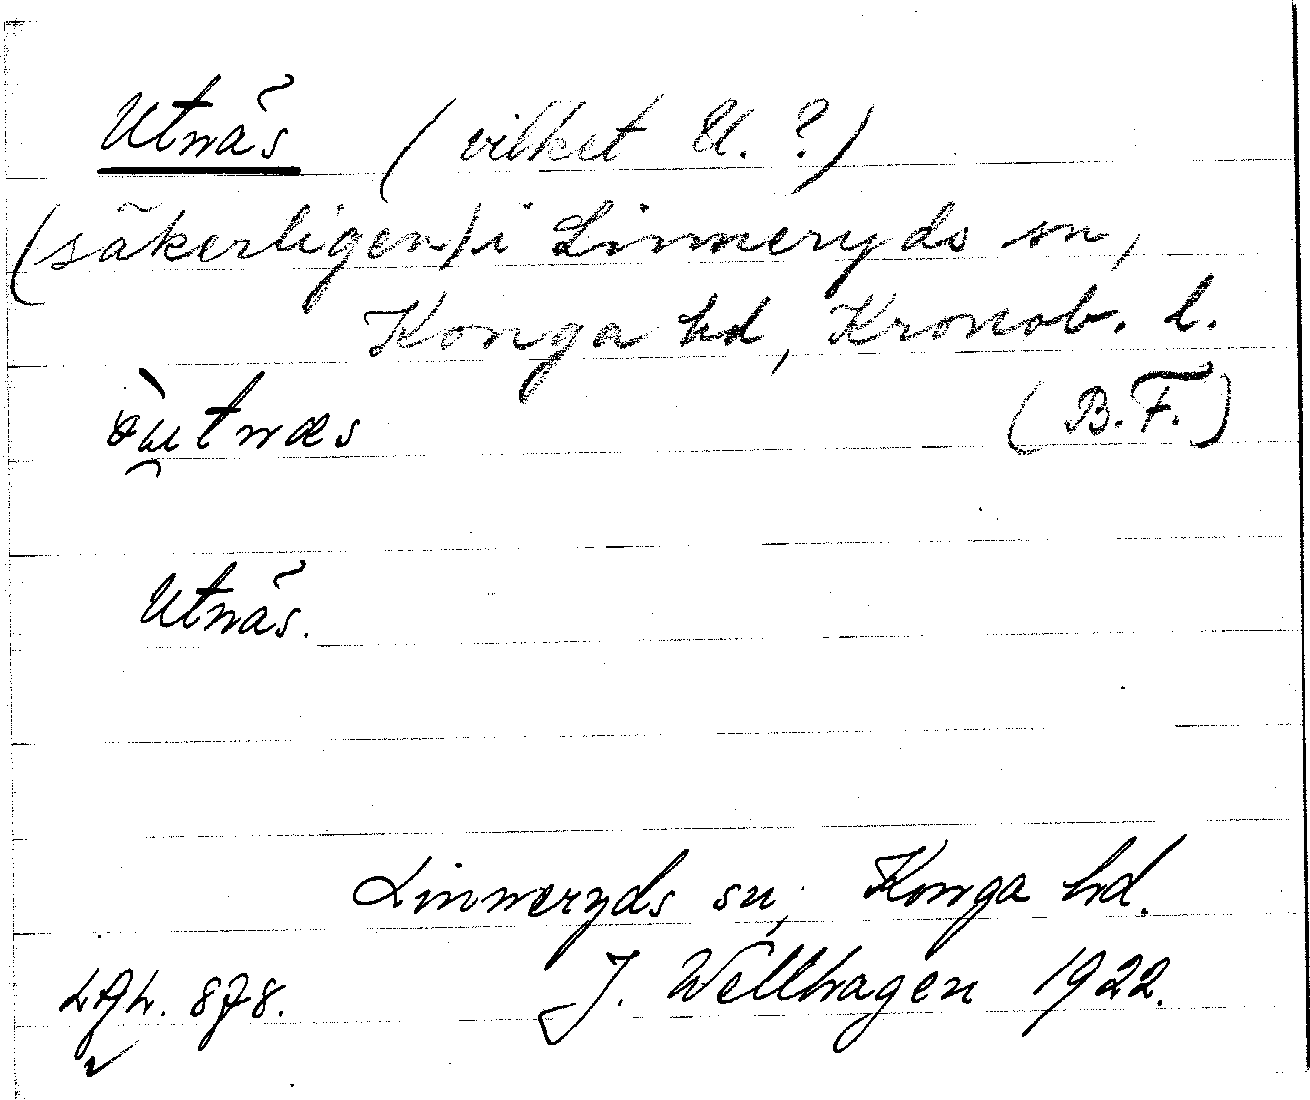 Utnäs (vilket U. ?)
(säkerligen) i Linneryds sn,
Konga hd, Kronob. l.
(B.F.)
Utnäs.
Linneryds sn, Konga hd.
LAL. 878. J. Wellhagen 1922.